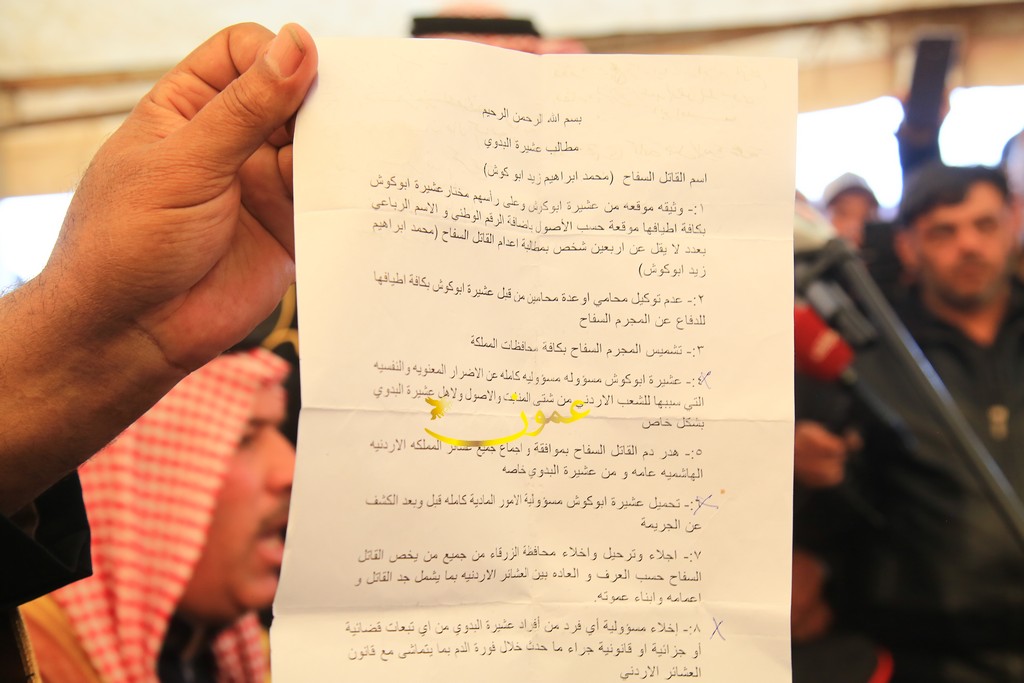 بسم الله الرحمن الرحيم
مطالب عشيرة البدوي
اسم القاتل السفاح (محمد ابراهيم زيد ابو كوش)
١:- وثيقه موقعه من عشيرة ابوكوش وعلى رأسهم مختار عشيرة ابوكوش
بكافة اطيافها موقعة حسب الأصول باضافة الرقم الوطني و الاسم الرباعي
بعدد لا يقل عن اربعين شخص بمطالبة اعدام القاتل السفاح (محمد ابراهيم
زيد ابوكوش)
٢:- عدم توكيل محامي اوعدة محامين من قبل عشيرة ابوكوش بكافة اطيافها
للدفاع عن المجرم السفاح
٣:- تشميس المجرم السفاح بكافة محافظات المملكة
٤:- عشيرة ابوكوش مسؤوله مسؤوليه كامله عن الاضرار المعنويه والنفسيه
التي سببها للشعب الاردني من شتى المنابت والاصول ولاهل عشيرة البدوي
بشكل خاص
عمون
٥:- هدر دم القاتل السفاح بموافقة و اجماع جميع عشائر المملكه الاردنيه
الهاشميه عامه و من عشيرة البدوي خاصه
٦:- تحميل عشيرة ابوكوش مسؤولية الامور المادية كامله قبل وبعد الكشف
عن الجريمة
٧:- اجلاء وترحيل واخلاء محافظة الزرقاء من جميع من يخص القاتل
السفاح حسب العرف و العاده بين العشائر الاردنيه بما يشمل جد القاتل و
اعمامه وابناء عمومته.
٨:- إخلاء مسؤولية أي فرد من أفراد عشيرة البدوي من اي تبعات قضائية
أو جزائية او قانونية جراء ما حدث خلال فورة الدم بما يتماشى مع قانون
العشائر الاردني